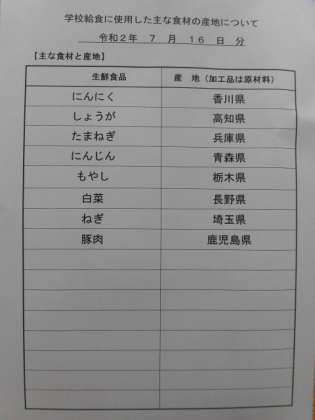 学校給食に使用した主な食材の産地について
令和２年 ７ 月 １６ 日 分
【主な食材と産地】
生鮮食品 産 地（加工品は原材料）
にんにく 香川県
しょうが 高知県
たまねぎ 兵庫県
にんじん 青森県
もやし 栃木県
白菜 長野県
ねぎ 埼玉県
豚肉 鹿児島県